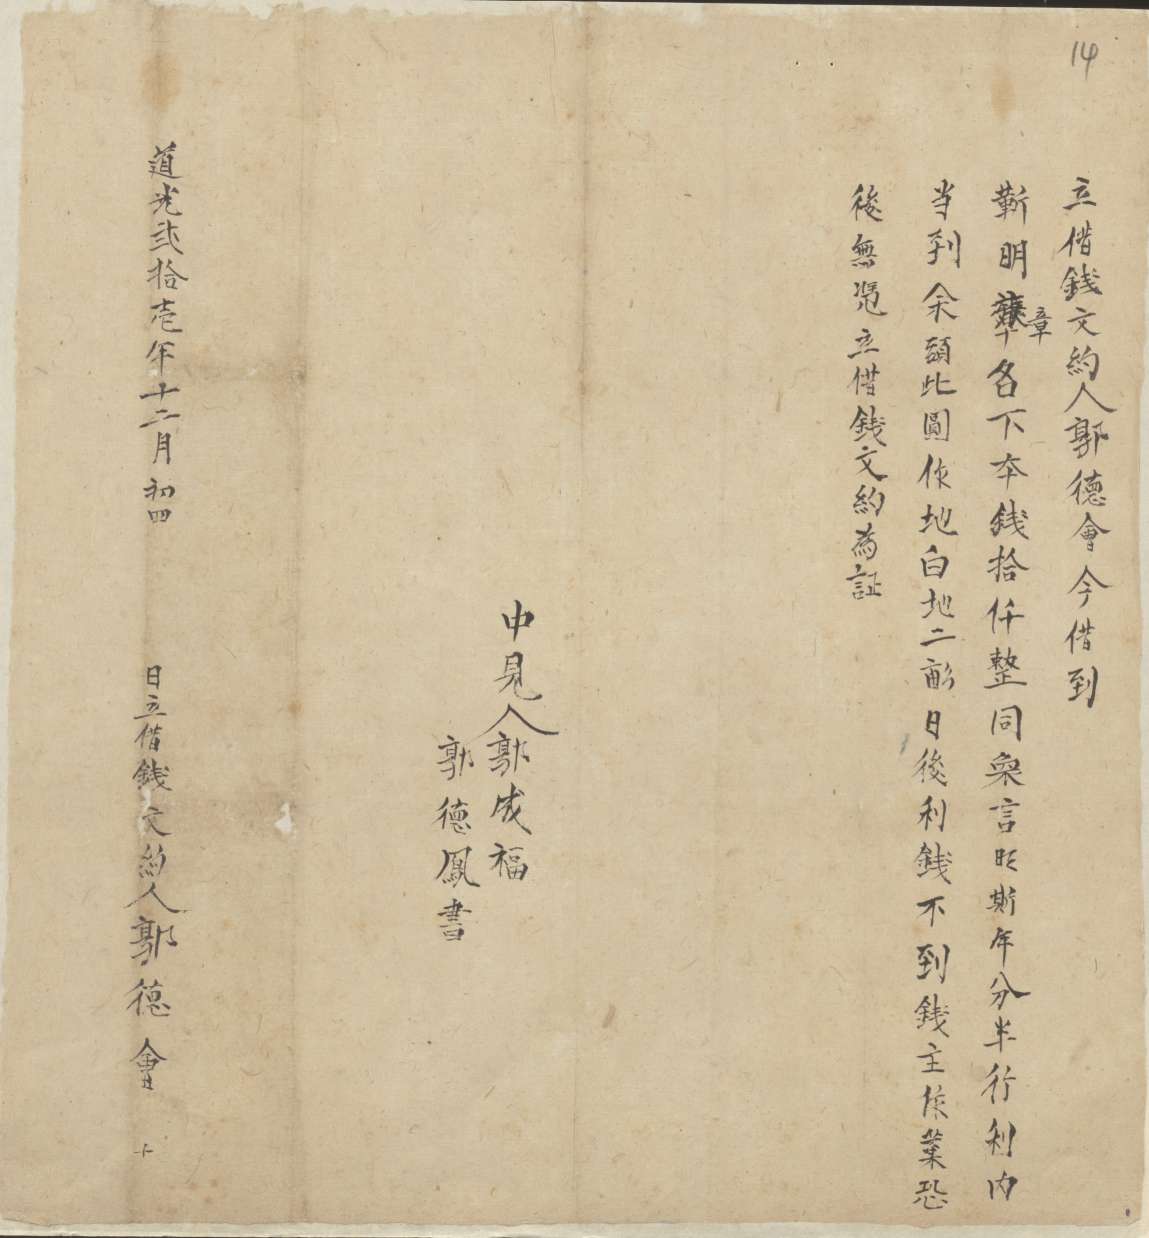 14
立借錢文約人郭德會今借到
靳明章名下本錢拾仟整同衆言明斯年分半行利内
当到余頭北圓作地白地二畝日後利錢不到錢主作業恐
後無憑立借錢文約為証
中見人郭成福
郭德鳳書
道光弍拾壱年十二月初四日立借錢文約人郭德會十